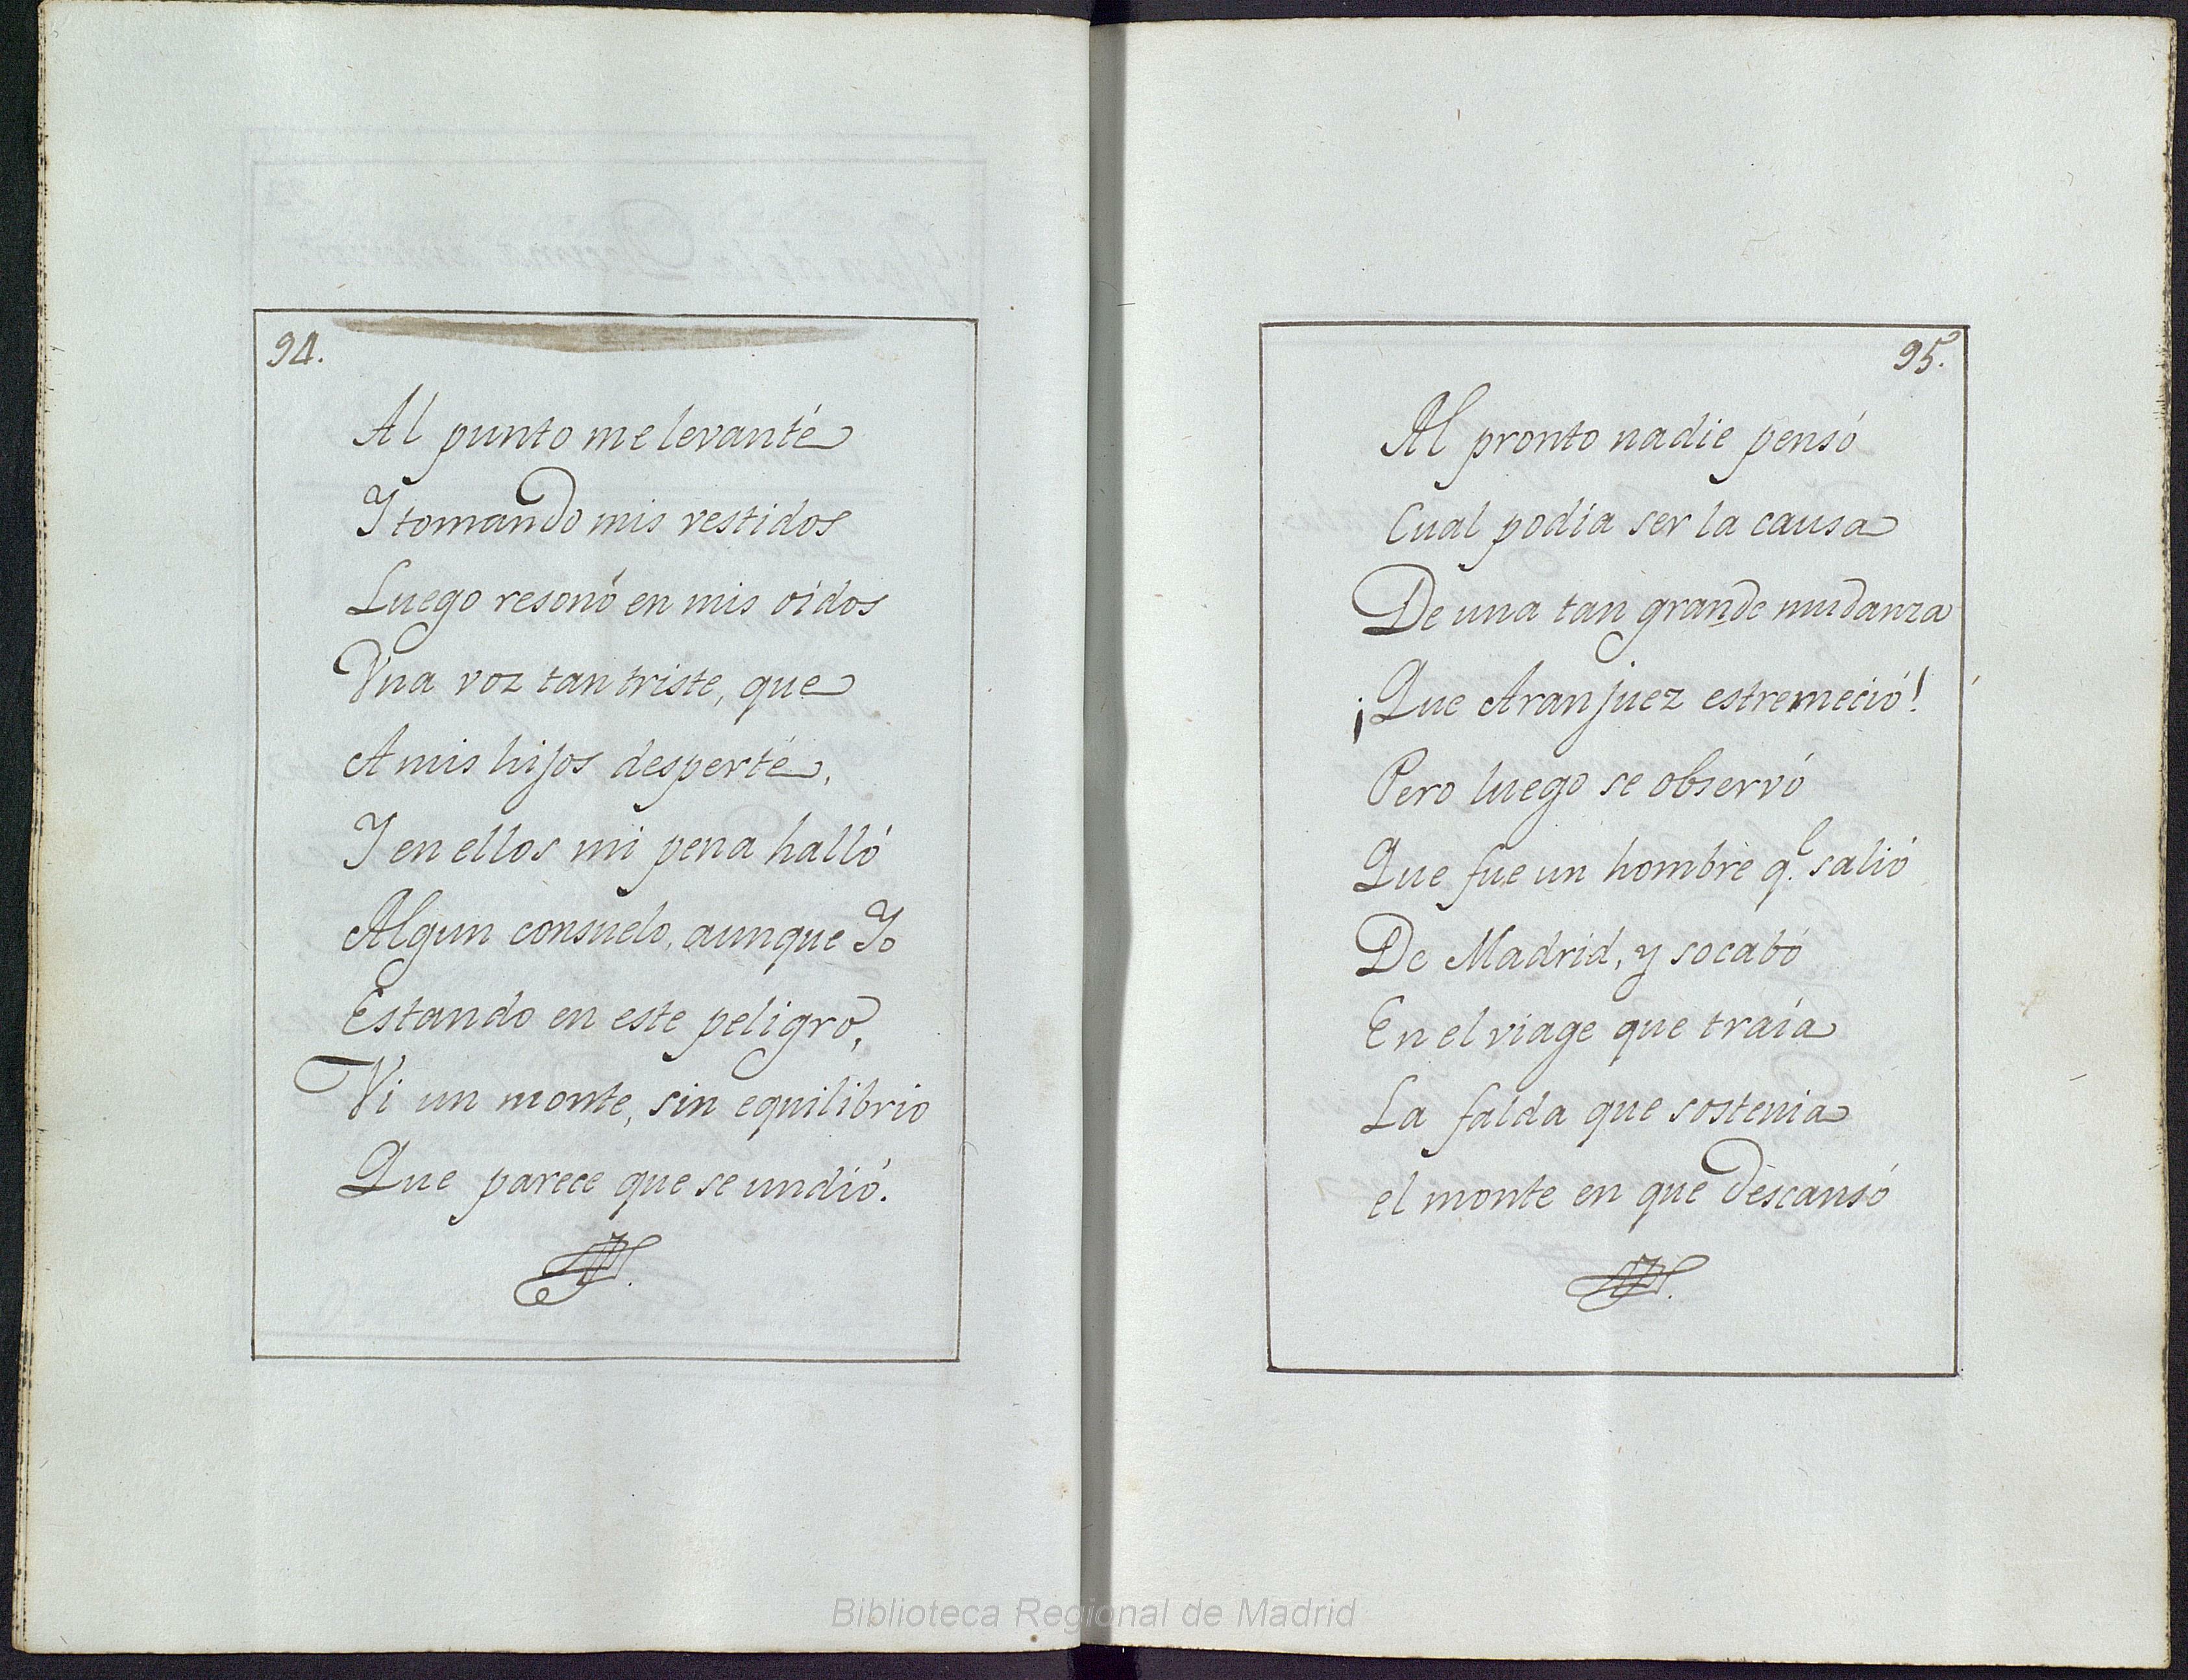 94.
Al punto me levanté
Y tomando mis vestidos
Luego resonó en mis oídos
Vna voz tan triste, que
A mis hijos desperté,
Y en ellos mi pena halló
Algun consuelo, aunque Yo
Estando en este peligro,
Vi un monte, sin equilibrio
Que parece que se undió.
95.
Al pronto nadie pensó
Cual podía ser la causa
De una tan grande mudanza
¡Que Aranjuez estremeció!
Pero luego se observó
Que fue un hombre q.e salió
De Madrid, y socabó
En el viage que traía
La falda que sostenia
el monte en que descansó
Biblioteca Regional de Madrid